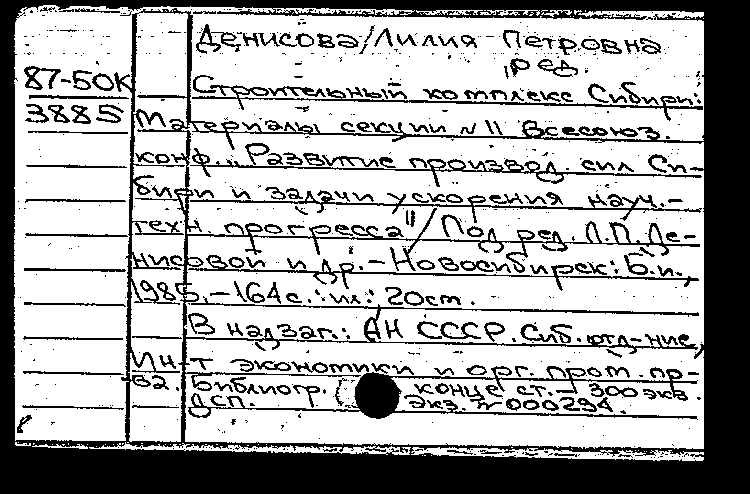 Денисова/Лилия Петровна
, ред.
87-50К Строительный комплекс Сибири:
3885 Материалы секции № 11 Всесоюз.
конф. „Развитие производ. сил Си-
бири и задачи ускорения науч.-
техн. прогресса"/ Под ред. Л.П. Де-
нисовой и др. - Новосибирск: Б.и.,
1985. - 164 с.: ил.; 20 см.
В надзаг.: АН СССР. Сиб. отд-ние,
Ин-т экономики и орг. пром. пр-
ва. Библиогр. конце ст. - 300 экз.
ДСП. Экз. № 000294.